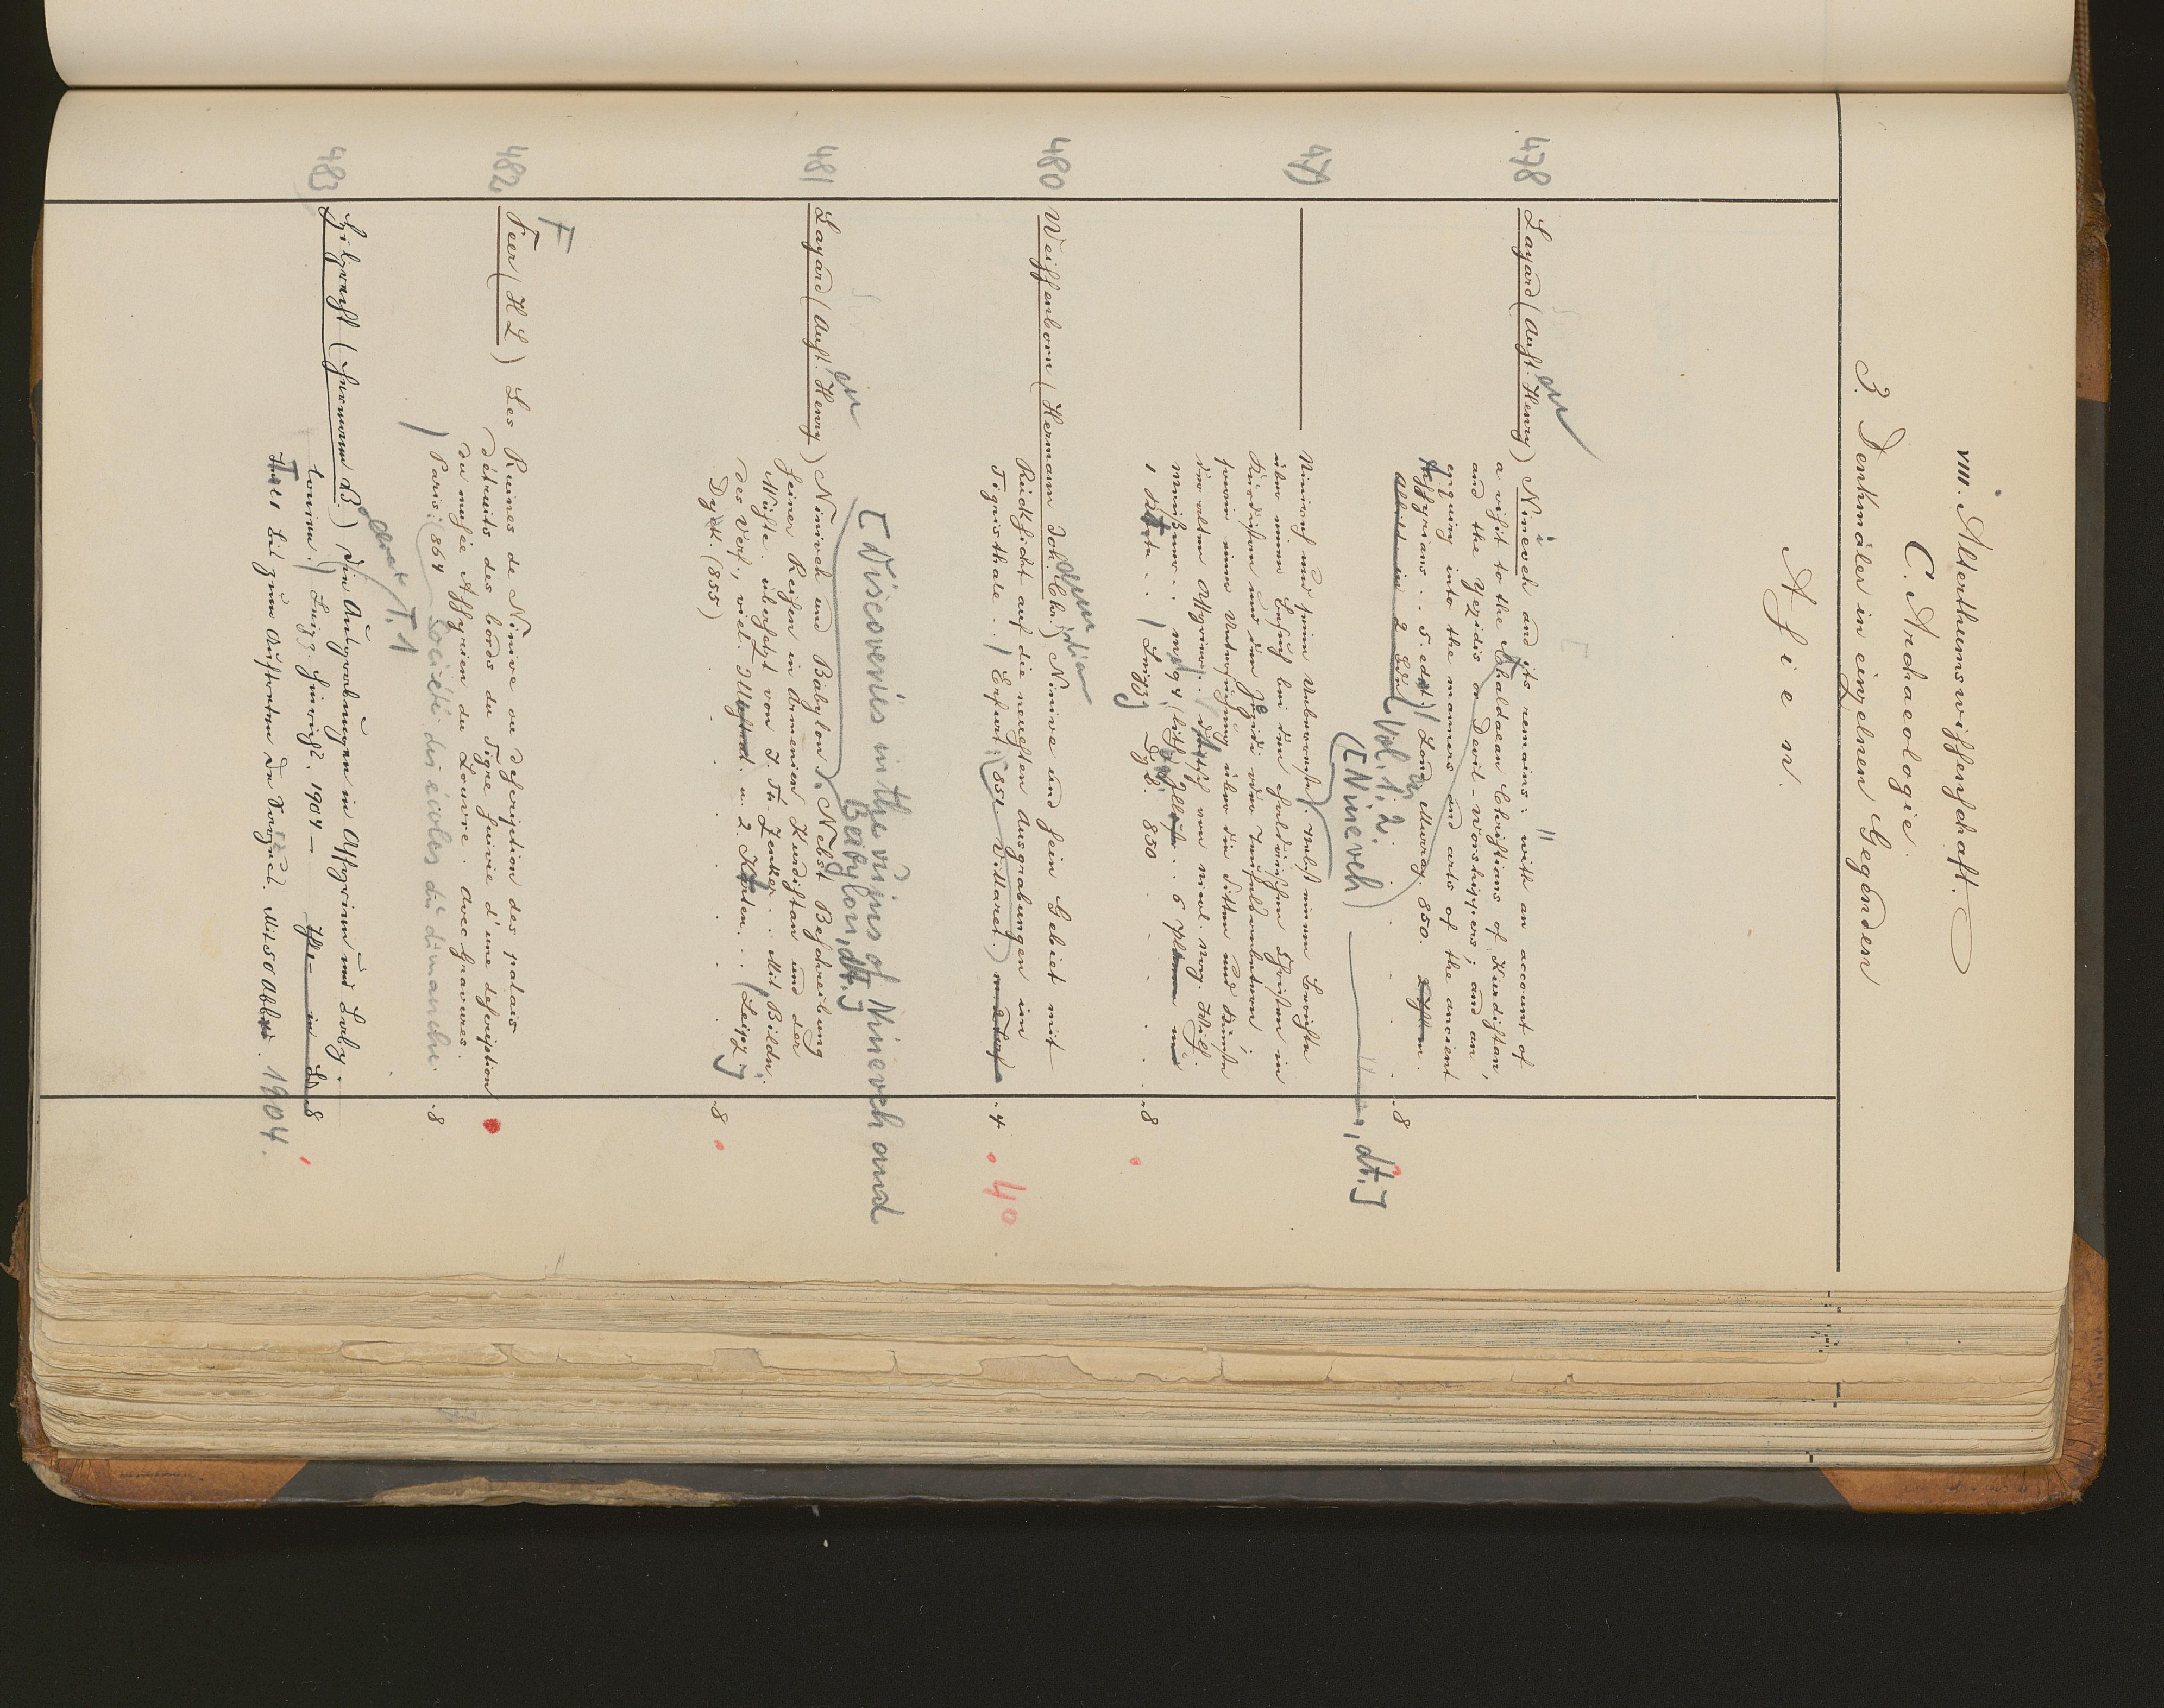 VIII. Alterthumswissenschaft.
C. Archaeologie.
3. Denkmäler in einzelnen Gegenden
Asien.
478 Layard (Aust. Henry) Nineveh and its remains: with an account of
en
a visit to the Chaldaean Christians of Kurdistan,
and the Yezidis or Devil-worshippers; and an
enquiry into the manners and arts of the ancient
Assyrians. . 5. ed. (Lond. Murray. 850.
Vol. 1. 2. . . . 8
[Nineveh, dt.]
479 ——— Niniveh und seine Ueberreste. Nebst einem Berichte
über einen Besuch bei den chaldäischen Christen in
Kurdistan und den Jezidi oder Teufelsanbetern;
sowie einer Untersuchung über die Sitten und Künste
der alten Assyrier. . Deutsch von Meißner. .
1 Karte. . (Leipzig) Dyk. 850 . . . . 8
480 Weissenborn (Hermann Joh. Chr.) Ninive und sein Gebiet mit
Rücksicht auf die neuesten Ausgrabungen im
Tigristhale. . (Erfurt 851. Villaret.) . 4
40
[Discoveries in the ruins of Nineveh and
Babylon, dt.]
481 Layard (Aust. Henry) Niniveh und Babylon. Nebst Beschreibung
en
seiner Reisen in Armenien Kurdistan und der
Wüste. übersetzt von J. Th. Zenker. . Mit Bildn.
des Verf., viel. u. 2 Karten. . (Leipz.
Dyk. (855) . . . . 8
F
482 Feer (H L) Les Ruines de Ninive ou description des palais
détruits des bords du Tigre suivie d'une description
du musée Assyrien du Louvre. avec gravures.
Paris: (864 Société des écoles du dimanche. 8
483 Hilprecht (Hermann V.) Die Ausgrabungen in Assyrien und Babylonien. (Leipz. Hinrichs. 1904 — 8
T. 1
Bis zum Auftreten De Sarzecs. Mit 50 Abb. 1904.